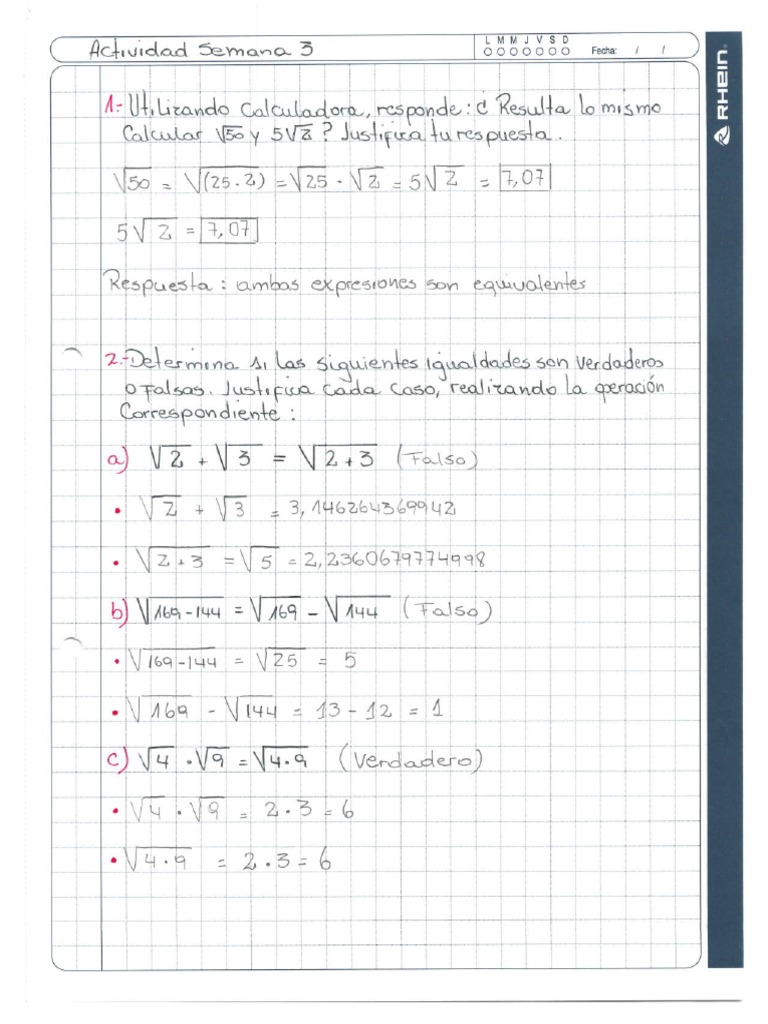 Actividad Semana 3
L M M J V S D
Fecha: / /
RHein
1.- Utilizando Calculadora, responde: ¿ Resulta lo mismo
Calcular √50 y 5√2 ? Justifica tu respuesta.
√50 = √(25·2) = √25 · √2 = 5√2 = 7,07
5√2 = 7,07
Respuesta : ambas expresiones son equivalentes
2.- Determina si las siguientes igualdades son verdaderos
o Falsas. Justifica cada caso, realizando la operación
Correspondiente :
a) √2 + √3 = √2+3 (Falso)
• √2 + √3 = 3,146264369942
• √2+3 = √5 = 2,2360679774998
b) √169-144 = √169 - √144 (Falso)
• √169-144 = √25 = 5
• √169 - √144 = 13 - 12 = 1
c) √4 · √9 = √4·9 (Verdadero)
• √4 · √9 = 2 · 3 = 6
• √4·9 = 2 · 3 = 6